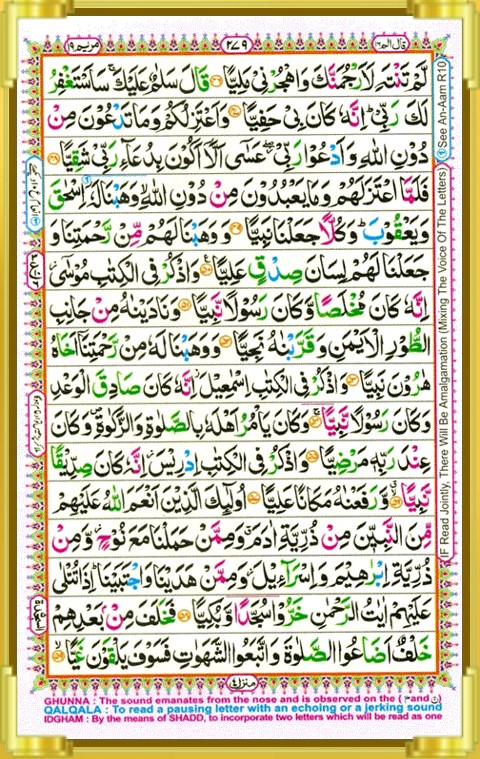 قال الم ١٦
٢٧٩
مريم ١٩
لَّمْ تَنْتَهِ لَاَرْجُمَنَّكَ وَاهْجُرْنِیْ مَلِیًّا ﴿۴۶﴾ قَالَ سَلٰمٌ عَلَیْكَ ۚ سَاَسْتَغْفِرُ
لَكَ رَبِّیْ ؕ اِنَّهٗ كَانَ بِیْ حَفِیًّا ﴿۴۷﴾ وَاَعْتَزِلُكُمْ وَمَا تَدْعُوْنَ مِنْ
دُوْنِ اللّٰهِ وَاَدْعُوْا رَبِّیْ ۖ عَسٰۤی اَلَّاۤ اَكُوْنَ بِدُعَآءِ رَبِّیْ شَقِیًّا ﴿۴۸﴾
فَلَمَّا اعْتَزَلَهُمْ وَمَا یَعْبُدُوْنَ مِنْ دُوْنِ اللّٰهِ ۙ وَهَبْنَا لَهٗۤ اِسْحٰقَ
وَیَعْقُوْبَ ؕ وَكُلًّا جَعَلْنَا نَبِیًّا ﴿۴۹﴾ وَوَهَبْنَا لَهُمْ مِّنْ رَّحْمَتِنَا وَ
جَعَلْنَا لَهُمْ لِسَانَ صِدْقٍ عَلِیًّا ﴿۵۰﴾ وَاذْكُرْ فِی الْكِتٰبِ مُوْسٰۤی ؗ
اِنَّهٗ كَانَ مُخْلَصًا وَّكَانَ رَسُوْلًا نَّبِیًّا ﴿۵۱﴾ وَنَادَیْنٰهُ مِنْ جَانِبِ
الطُّوْرِ الْاَیْمَنِ وَقَرَّبْنٰهُ نَجِیًّا ﴿۵۲﴾ وَوَهَبْنَا لَهٗ مِنْ رَّحْمَتِنَاۤ اَخَاهُ
هٰرُوْنَ نَبِیًّا ﴿۵۳﴾ وَاذْكُرْ فِی الْكِتٰبِ اِسْمٰعِیْلَ ؗ اِنَّهٗ كَانَ صَادِقَ الْوَعْدِ
وَكَانَ رَسُوْلًا نَّبِیًّا ﴿۵۴﴾ وَكَانَ یَاْمُرُ اَهْلَهٗ بِالصَّلٰوةِ وَالزَّكٰوةِ ۪ وَكَانَ
عِنْدَ رَبِّهٖ مَرْضِیًّا ﴿۵۵﴾ وَاذْكُرْ فِی الْكِتٰبِ اِدْرِیْسَ ؗ اِنَّهٗ كَانَ صِدِّیْقًا
نَّبِیًّا ﴿۵۶﴾ وَّرَفَعْنٰهُ مَكَانًا عَلِیًّا ﴿۵۷﴾ اُولٰٓىِٕكَ الَّذِیْنَ اَنْعَمَ اللّٰهُ عَلَیْهِمْ
مِّنَ النَّبِیّٖنَ مِنْ ذُرِّیَّةِ اٰدَمَ ۗ وَمِمَّنْ حَمَلْنَا مَعَ نُوْحٍ ؗ وَّمِنْ
ذُرِّیَّةِ اِبْرٰهِیْمَ وَاِسْرَآءِیْلَ ؗ وَمِمَّنْ هَدَیْنَا وَاجْتَبَیْنَا ؕ اِذَا تُتْلٰی
عَلَیْهِمْ اٰیٰتُ الرَّحْمٰنِ خَرُّوْا سُجَّدًا وَّبُكِیًّا ﴿۵۸﴾ فَخَلَفَ مِنْۢ بَعْدِهِمْ
خَلْفٌ اَضَاعُوا الصَّلٰوةَ وَاتَّبَعُوا الشَّهَوٰتِ فَسَوْفَ یَلْقَوْنَ غَیًّا ﴿۵۹﴾
منزل ٤
السجدة
① See An-Aam R10
(IF Read Jointly, There Will Be Amalgamation (Mixing The Voice Of The Letters)
GHUNNA : The sound emanates from the nose and is observed on the (م and ن)
QALQALA : To read a pausing letter with an echoing or a jerking sound
IDGHAM : By the means of SHADD, to incorporate two letters which will be read as one